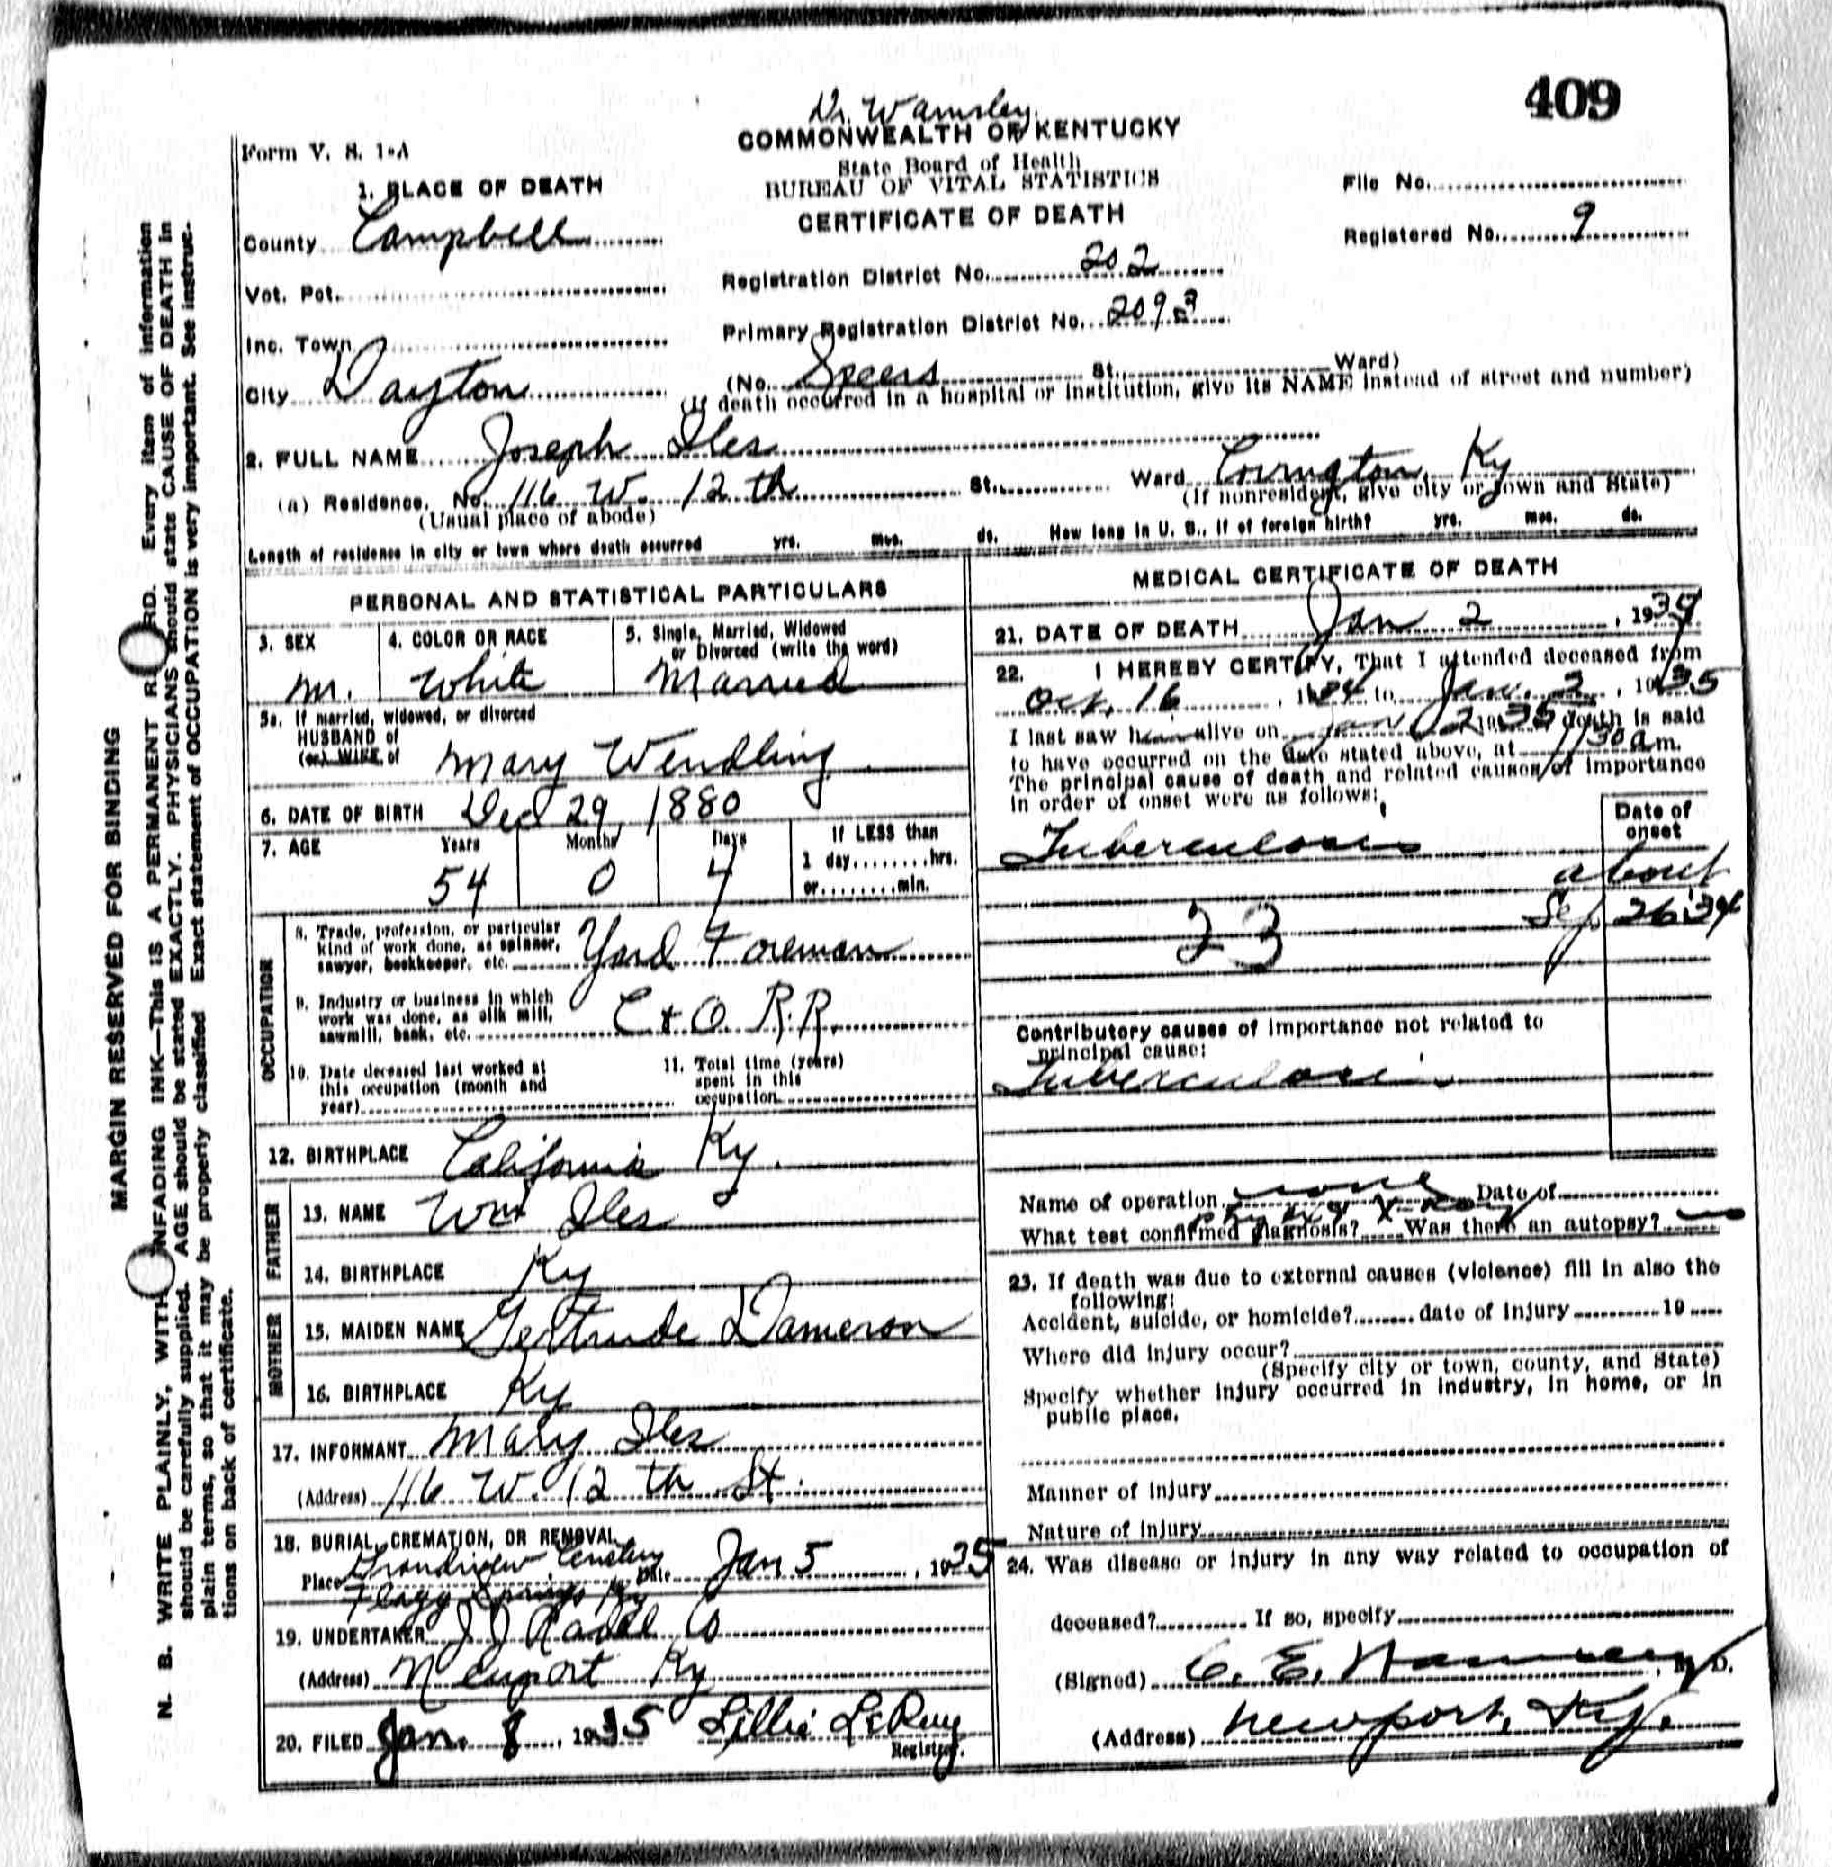 409
Dr. Wamsley
COMMONWEALTH OF KENTUCKY
State Board of Health
BUREAU OF VITAL STATISTICS
CERTIFICATE OF DEATH
Form V. S. 1-A
File No.
Registered No. 9
1. PLACE OF DEATH
County Campbell
Vot. Pct.
Inc. Town
City Dayton
Registration District No. 202
Primary Registration District No. 2093
(No. Speers St. Ward)
(If death occurred in a hospital or institution, give its NAME instead of street and number)
2. FULL NAME Joseph Iles
(a) Residence, No. 116 W. 12th St. Ward Covington, Ky
(Usual place of abode) (If nonresident, give city or town and State)
Length of residence in city or town where death occurred yrs. mos. ds. How long in U. S., if of foreign birth? yrs. mos. ds.
PERSONAL AND STATISTICAL PARTICULARS
3. SEX
m.
4. COLOR OR RACE
White
5. Single, Married, Widowed
or Divorced (write the word)
Married
5a. If married, widowed, or divorced
HUSBAND of
(or) WIFE of Mary Wendling
6. DATE OF BIRTH Dec 29, 1880
7. AGE Years Months Days If LESS than
1 day, ........hrs.
54 0 4 or ........min.
OCCUPATION
8. Trade, profession, or particular
kind of work done, as spinner,
sawyer, bookkeeper, etc. Yard Foreman
9. Industry or business in which
work was done, as silk mill,
sawmill, bank, etc. C + O. R.R.
10. Date deceased last worked at
this occupation (month and
year)
11. Total time (years)
spent in this
occupation
12. BIRTHPLACE California Ky.
FATHER
13. NAME Wm Iles
14. BIRTHPLACE Ky
MOTHER
15. MAIDEN NAME Gertrude Dameron
16. BIRTHPLACE Ky
17. INFORMANT Mary Iles
(Address) 116 W. 12th St.
18. BURIAL, CREMATION, OR REMOVAL
Place Grandview Cemetery Date Jan 5, 1935
Flagg Springs Ky
19. UNDERTAKER J J Radel Co
(Address) Newport Ky
20. FILED Jan. 8, 1935 Lillie LeRoy
Registrar.
MEDICAL CERTIFICATE OF DEATH
21. DATE OF DEATH Jan 2, 1934
22. I HEREBY CERTIFY, That I attended deceased from
Oct. 16, 1934 to Jan. 2, 1935
I last saw him alive on Jan 2 1935 death is said
to have occurred on the date stated above, at 1130 a m.
The principal cause of death and related causes of importance
in order of onset were as follows:
Date of
onset
Tuberculosis
about
Sep. 26 '34
23
Contributory causes of importance not related to
principal cause:
Tuberculosis
Name of operation none Date of
What test confirmed diagnosis? X-Ray Was there an autopsy?
23. If death was due to external causes (violence) fill in also the
following:
Accident, suicide, or homicide? date of injury 19
Where did injury occur?
(Specify city or town, county, and State)
Specify whether injury occurred in industry, in home, or in
public place.
Manner of injury
Nature of injury
24. Was disease or injury in any way related to occupation of
deceased? If so, specify
(Signed) C. E. Wamsley, M. D.
(Address) Newport, Ky.
MARGIN RESERVED FOR BINDING
N. B. WRITE PLAINLY, WITH UNFADING INK—THIS IS A PERMANENT RECORD. Every item of information
should be carefully supplied. AGE should be stated EXACTLY. PHYSICIANS should state CAUSE OF DEATH in
plain terms, so that it may be properly classified. Exact statement of OCCUPATION is very important. See instruc-
tions on back of certificate.